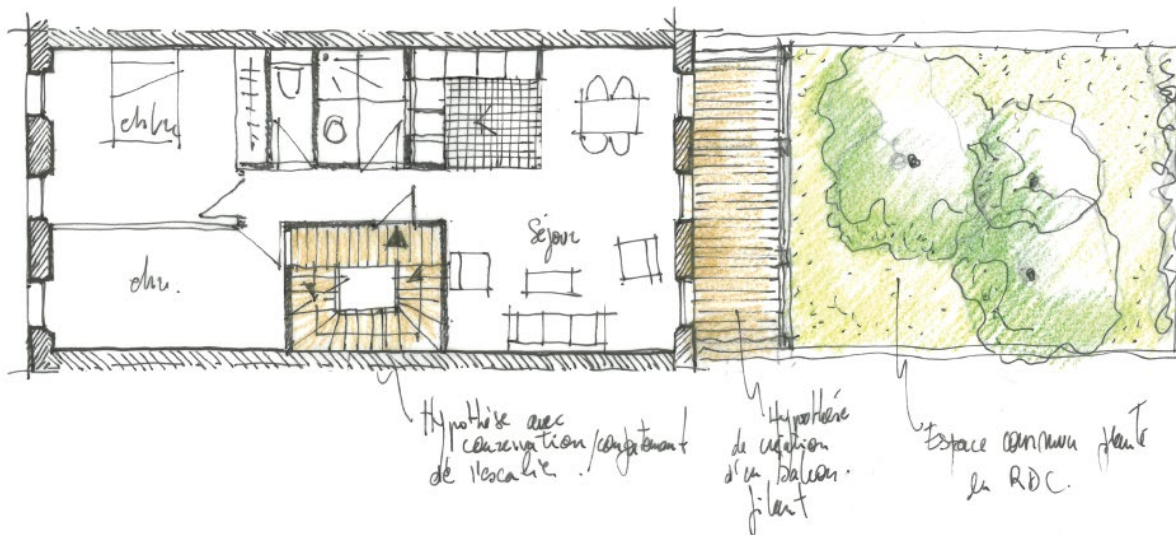 chbre
Séjour
chbre.
Hypothèse avec
conservation/confortement
de l'escalier.
Hypothèse
de création
d'un balcon.
filant
Espace commun planté
en RDC.